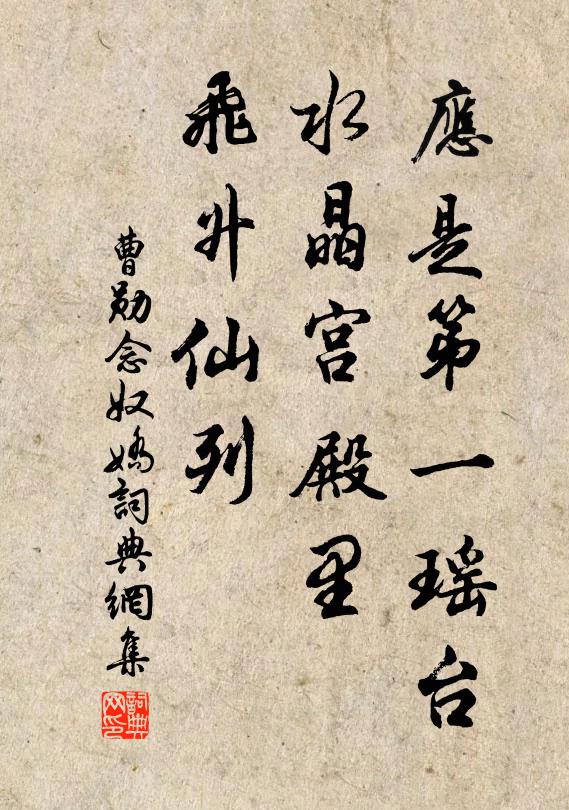 應是第一瑶台
水晶宫殿里
飛升仙列
曹勛念奴嬌詞典網集
詞典网印